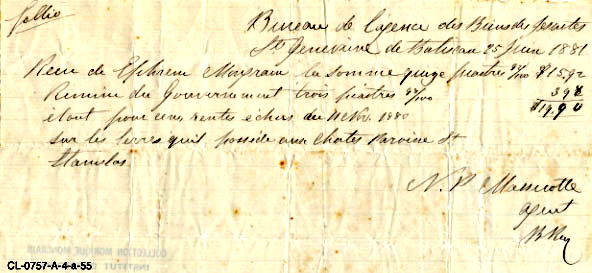 Bureau de l'agence des Biens des Jesuites
Ste Genevieve de Batiscan 25 Juin 1881
Recu de Ephrem Monsrain la somme quinze piastres 92/100 $15.92
Remise du Gouvernement trois piastres 98/100 3 98
$19.90
étant pour ces rentes échus au 11 Nov. 1880
sur les terres qu'il possède aux chutes Paroisse St
Stanislas.
N. P. Massicotte
agent
COLLECTION MONIQUE MONGRAIN
CL-0757-A-4-a-55